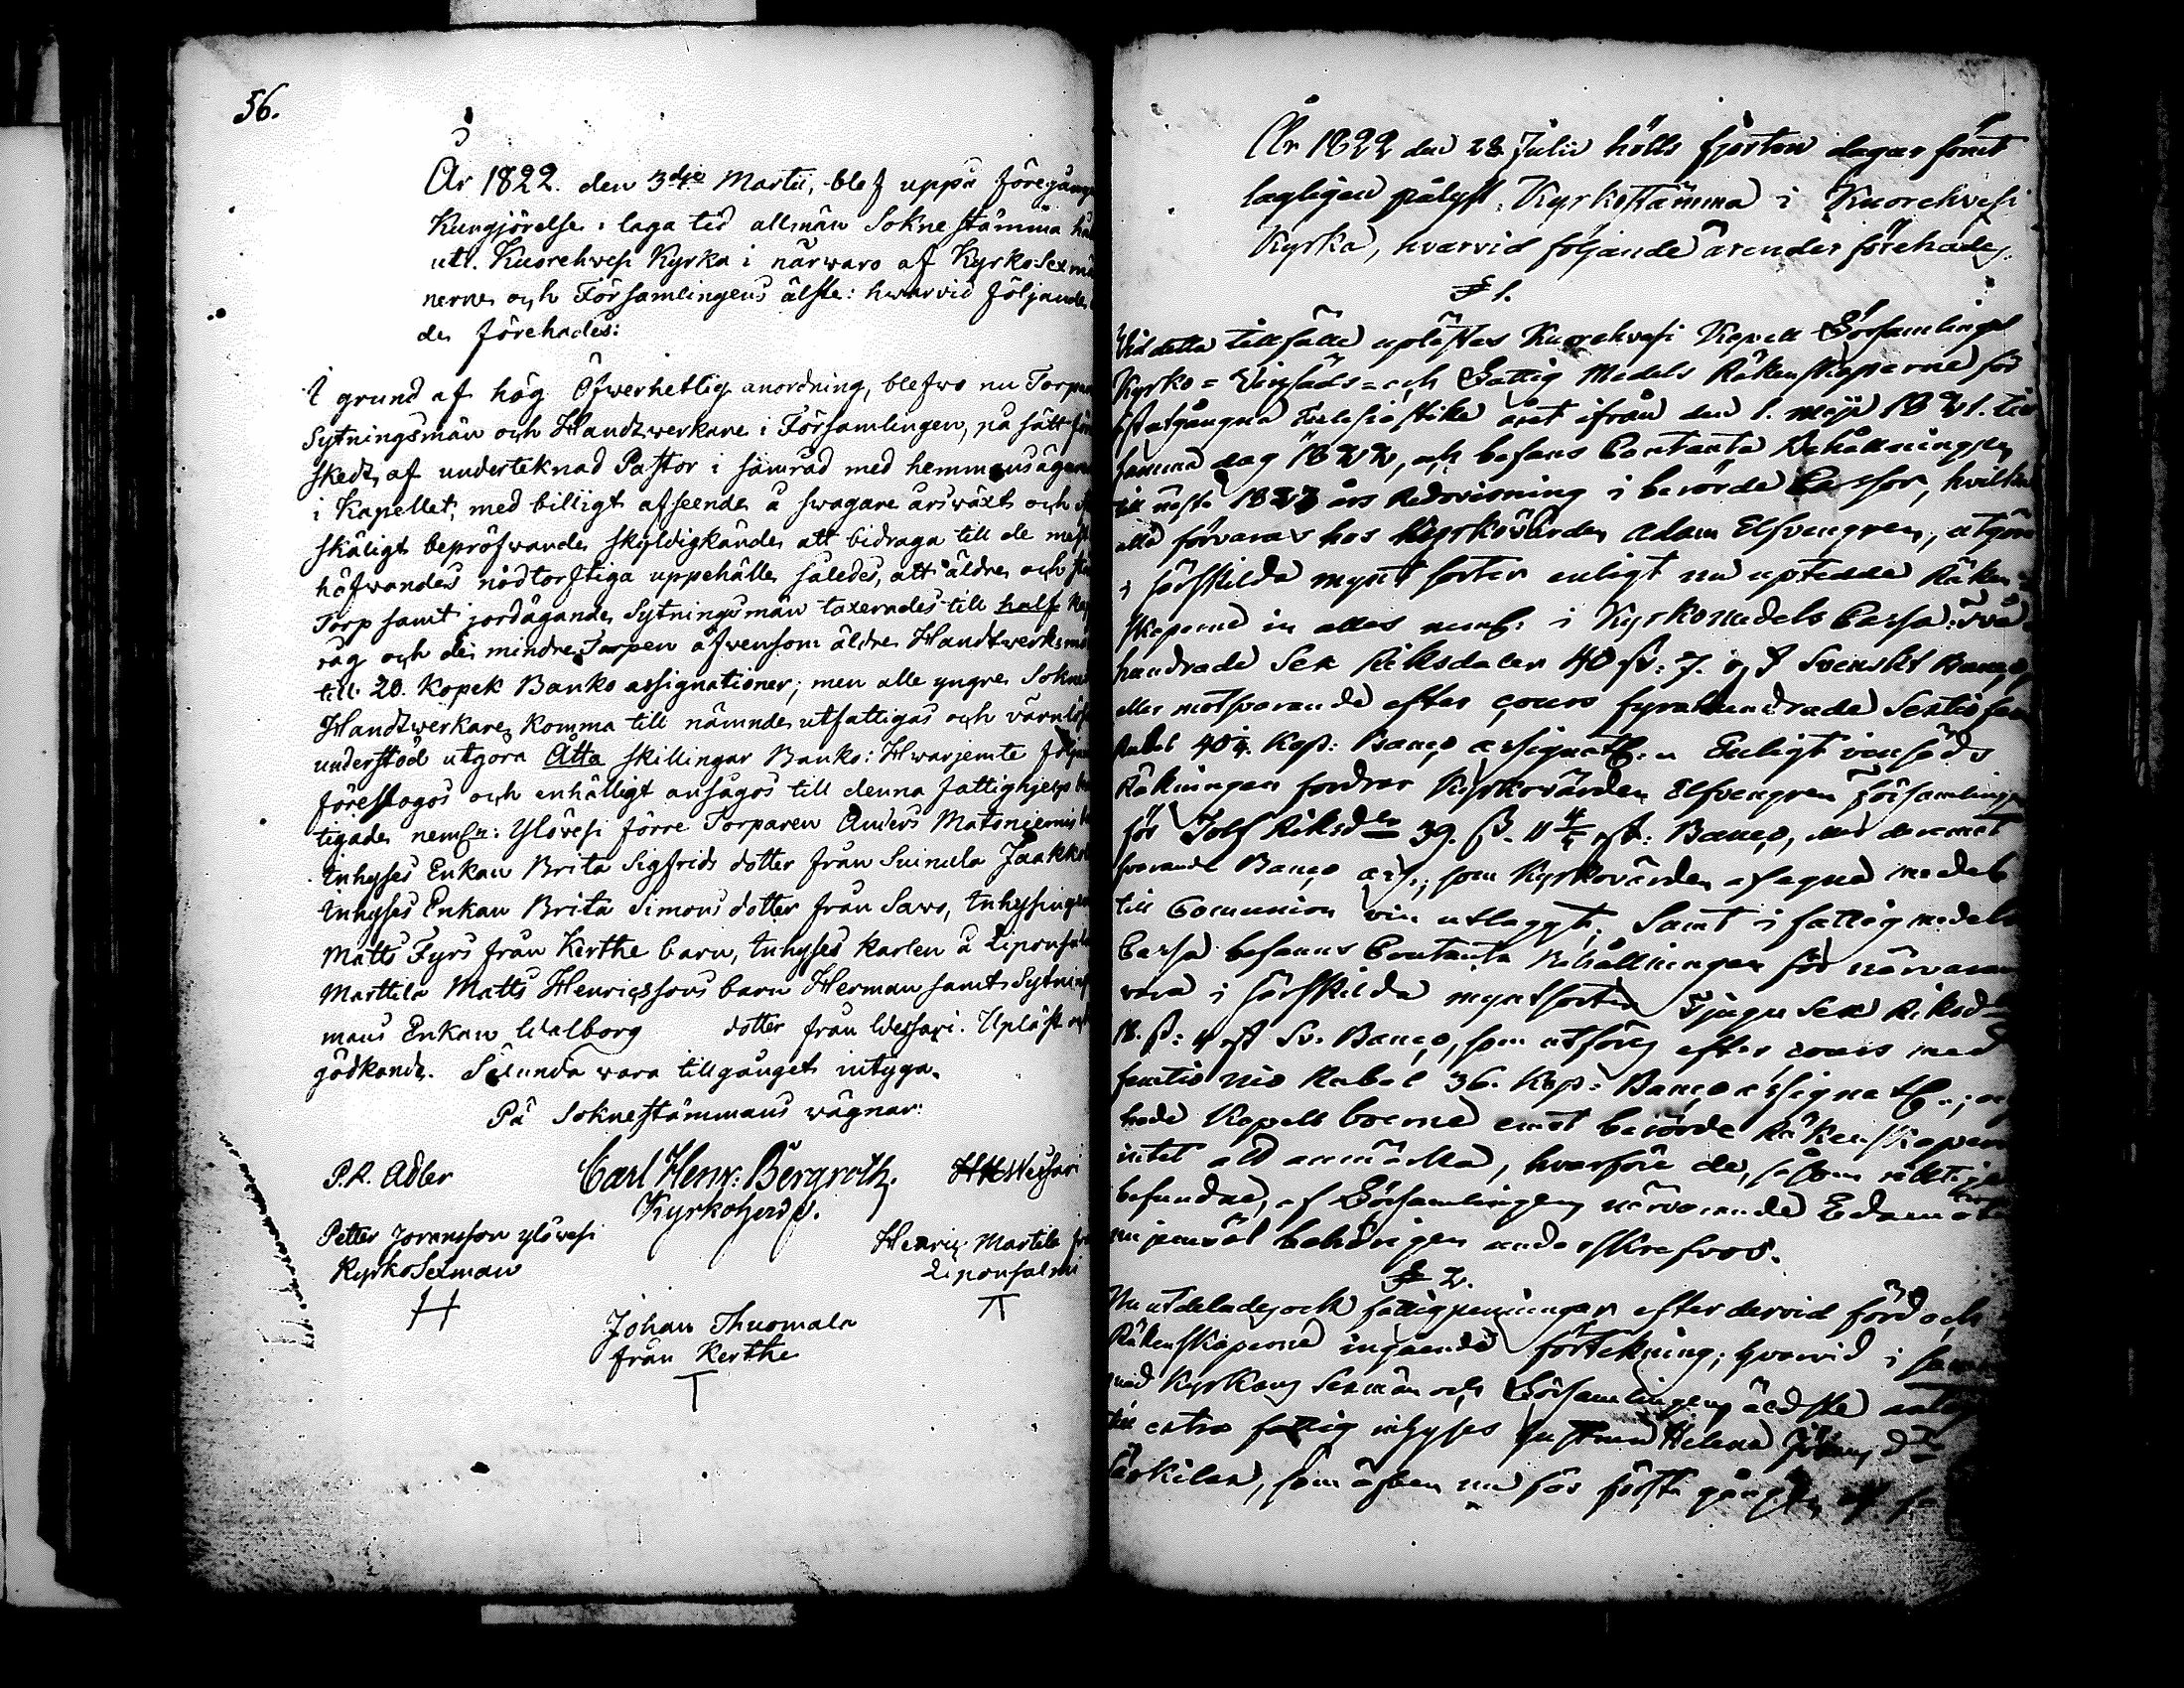 56.
År 1822. den 3dje Martii, blef uppå föregång
Kungjörelse i laga tid allmän Sokne stämma hål
uti Kuorehvesi Kyrka i närwaro af Kyrko-Sexmä
nerne och Församlingens älste: hwarvid följande
de förehades:
I grund af hög Öfwerhetlig anordning, blefwo nu Torpar
Sytningsmän och Handtwerkare i Församlingen, på sätt för
skedt, af underteknad Pastor i samråd med hemmansägar
i Kapellet, med billigt afseende å swagare årswäxt och
skäligt bepröfwande skyldigkände att bidraga till de mest
höfwandes nödtorftiga uppehälle således, att äldre och
Torp samt jordägande Sytningsmän taxerades till half kap
råg och de mindre Torpen äfwensom äldre Handtwerksmä
till 20. Kopek Banko assignationer; men alle yngre Sokne
Handtwerkare komma till nämnde utfattigas och värnlös
understöd utgöra Åtta skillingar Banko: Hwarjemte följan
föreslogos och enhälligt ansågos till denna fattighjelp be
tigade neml:n: Ylövesi förre Torparen Anders Matsniemis
Inhyses Enkan Brita Sigfrids dotter från Suinula Jaakko
Inhyses Enkan Brita Simons dotter från Sawo, Inhysingen
Matts Fyrs från Kerthe barn, Inhyses karlen å Liponsal
Marttila Matts Henricssons barn Herman samt Sytnings
mans Enkan Walborg dotter från Wessari. Upläst och
godkändt. Sålunda wara tillgånget intyga.
På Soknestämmans wägnar:
P.R. Adler Carl Henr: Bergroth. Wessari
Kyrkoherde.
Petter Joransson Ylövesi
Kyrko Sexman
Henric Martila frå
Liponsalmi
Johan Thuomala
från Kerthe
År 1822 den 28 Julii hölls fjorton dagar förut
lagligen pålyst Kyrkostämma i Kuorehvesi
Kyrka, hvarvid följande ärender förehades.
§ 1.
Vid detta tillfälle uplästes Kuorehvesi Kapell Församlings
Kyrko- Vinsäds- och Fattig Medels Räkenskaperne för
Ecklesiastike året ifrån den 1. maji 1821. till
samma dag 1822, och befans Contanta Behållningen
till nästa 1823 års Redovisning i berörde Cassor, hvilken
alla förvaras hos Kyrkovärden Adam Elfvengren, utgöra
i särskilda mynt sorter enligt nu uptedde Räken-
skaperne in alles neml: i Kyrkomedels Cassa: Två
hundrade Sex Riksdaler 40 sk: 7. rst Svenskt Banco,
eller motsvarande efter cours fyrahundrade Sextio fem
Rubel 40 Kop: Banco assignat:r. Enligt vinsäds
Räkningen fordrar Kyrkovärden Elfvengren Församlingen
för Tolf Riksd:r 39. sk. 11 rst: Banco, med deremot
svarande Banco ass., som Kyrkovärden af egna medel
till Communion vin utlaggt; Samt i fattig medels
Cassa befanns Contanta Behållningen för närvaran
vara i särskilda myntsorter Tjugu Sex Riksd
18. sk: 4 rst Sv. Banco, som utföres efter cours med
femtio nio Rubel 36. Kop: Banco assignat:r;
hade Kapell boerne emot berörde Räkenskaper
intet att anmärka, hvarföre de, såsom riktiga
befundne, af Församlingens närvarande Ledamöter
behörigen underskrefvos.
§ 2.
Nu utdelades ock fattigpenningar efter dervid förd och
Räkenskaperne ingående förtekning; hvarvid i sam
råd Kyrkans Sexmän och Församlingens äldste antogs
till extra fattig inhyses Hustrun Helena Johans d:r
som äfven nu för första gången